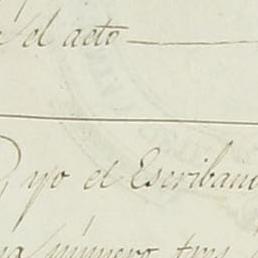 el acto
yo el Escribano
número tres